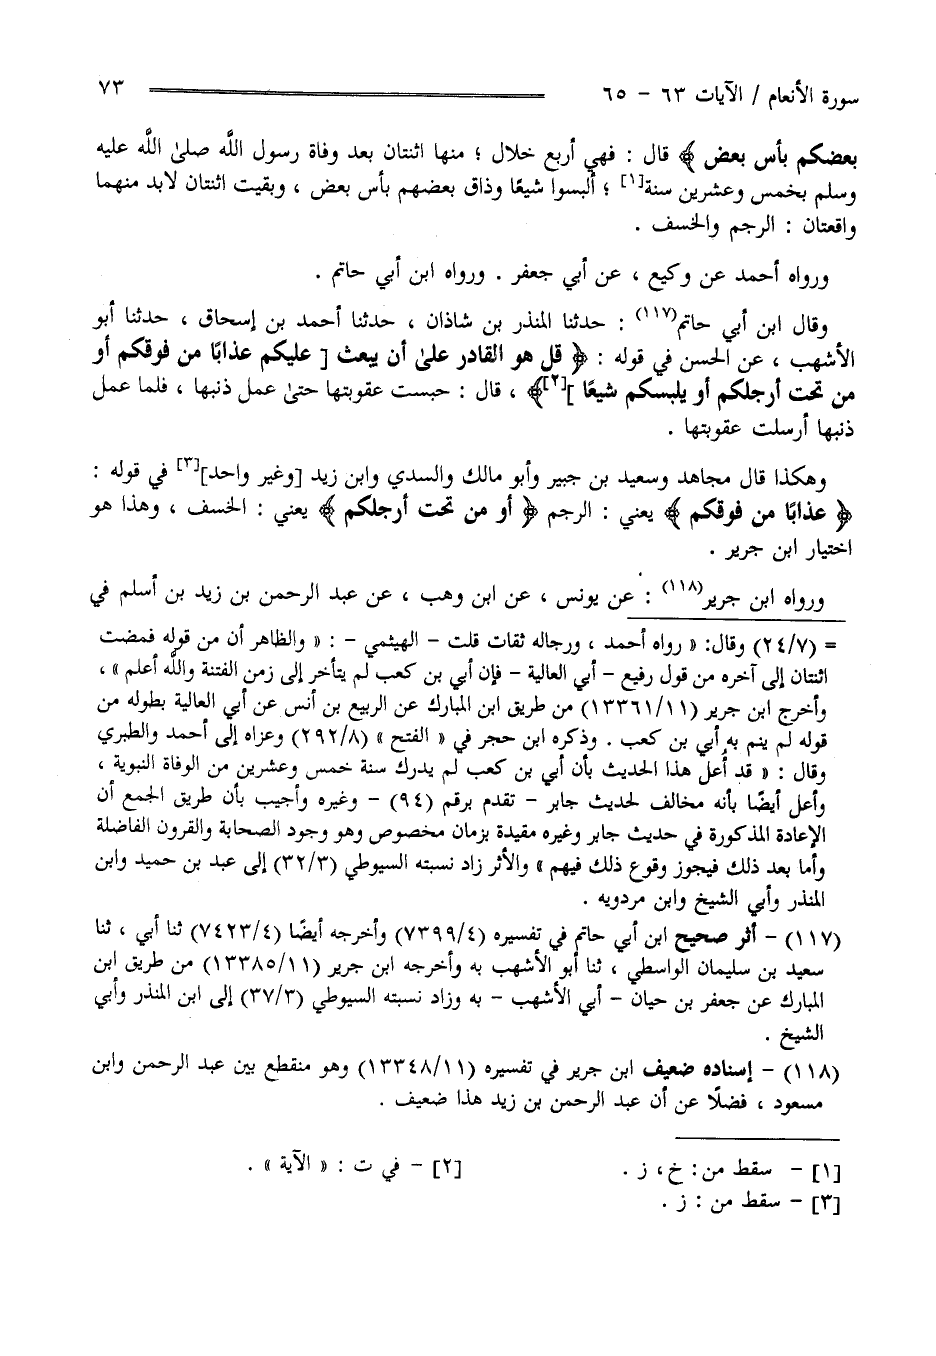 سورة الأنعام / الآيات ٦٣ - ٦٥ ٧٣
بعضكم بأس بعض ﴾ قال : فهي أربع خلال ؛ منها اثنتان بعد وفاة رسول اللَّه صلىٰ اللَّه عليه
وسلم بخمس وعشرين سنة[١] ؛ ألبسوا شيعًا وذاق بعضهم بأس بعض ، وبقيت اثنتان لابد منهما
واقعتان : الرجم والخسف .
ورواه أحمد عن وكيع ، عن أبي جعفر . ورواه ابن أبي حاتم .
وقال ابن أبي حاتم(١١٧) : حدثنا المنذر بن شاذان ، حدثنا أحمد بن إسحاق ، حدثنا أبو
الأشهب ، عن الحسن في قوله : ﴿ قل هو القادر علىٰ أن يبعث [ عليكم عذابًا من فوقكم أو
من تحت أرجلكم أو يلبسكم شيعًا ][٢]﴾ ، قال : حبست عقوبتها حتىٰ عمل ذنبها ، فلما عمل
ذنبها أرسلت عقوبتها .
وهكذا قال مجاهد وسعيد بن جبير وأبو مالك والسدي وابن زيد [وغير واحد][٣] في قوله :
﴿ عذابًا من فوقكم ﴾ يعني : الرجم ﴿ أو من تحت أرجلكم ﴾ يعني : الخسف ، وهذا هو
اختيار ابن جرير .
ورواه ابن جرير(١١٨) : عن يونس ، عن ابن وهب ، عن عبد الرحمن بن زيد بن أسلم في
= (٢٤/٧) وقال: « رواه أحمد ، ورجاله ثقات قلت - الهيثمي - : « والظاهر أن من قوله فمضت
اثنتان إلى آخره من قول رفيع - أبي العالية - فإن أبي بن كعب لم يتأخر إلى زمن الفتنة واللَّه أعلم » ،
وأخرج ابن جرير (١٣٣٦١/١١) من طريق ابن المبارك عن الربيع بن أنس عن أبي العالية بطوله من
قوله لم ينم به أبي بن كعب . وذكره ابن حجر في « الفتح » (٢٩٢/٨) وعزاه إلى أحمد والطبري
وقال : « قد أُعل هذا الحديث بأن أبي بن كعب لم يدرك سنة خمس وعشرين من الوفاة النبوية ،
وأعل أيضًا بأنه مخالف لحديث جابر - تقدم برقم (٩٤) - وغيره وأجيب بأن طريق الجمع أن
الإعادة المذكورة في حديث جابر وغيره مقيدة بزمان مخصوص وهو وجود الصحابة والقرون الفاضلة
وأما بعد ذلك فيجوز وقوع ذلك فيهم » والأثر زاد نسبته السيوطي (٣٢/٣) إلى عبد بن حميد وابن
المنذر وأبي الشيخ وابن مردويه .
(١١٧) - أثر صحيح ابن أبي حاتم في تفسيره (٧٣٩٩/٤) وأخرجه أيضًا (٧٤٢٣/٤) ثنا أبي ، ثنا
سعيد بن سليمان الواسطي ، ثنا أبو الأشهب به وأخرجه ابن جرير (١٣٣٨٥/١١) من طريق ابن
المبارك عن جعفر بن حيان - أبي الأشهب - به وزاد نسبته السيوطي (٣٧/٣) إلى ابن المنذر وأبي
الشيخ .
(١١٨) - إسناده ضعيف ابن جرير في تفسيره (١٣٣٤٨/١١) وهو منقطع بين عبد الرحمن وابن
مسعود ، فضلًا عن أن عبد الرحمن بن زيد هذا ضعيف .
[١] - سقط من: خ، ز . [٢] - في ت : « الآية » .
[٣] - سقط من : ز .